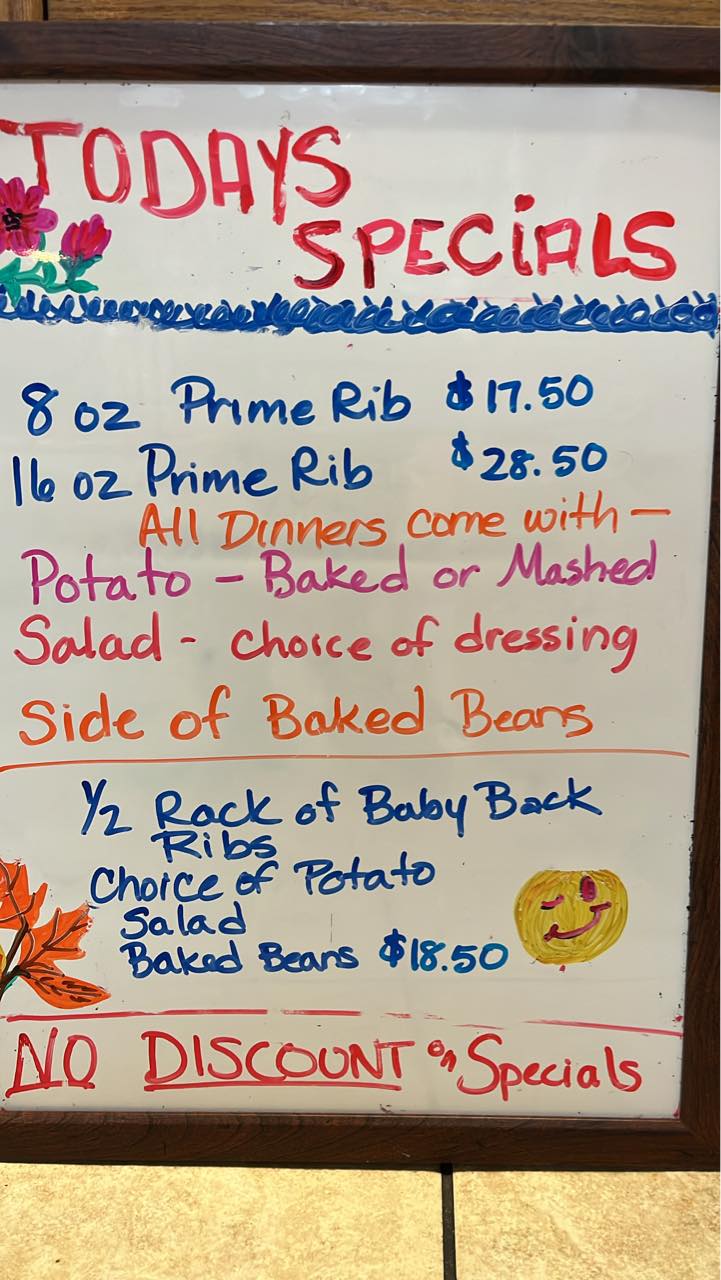 TODAYS
SPECiALS
8 oz Prime Rib $17.50
16 oz Prime Rib $28.50
All Dinners come with —
Potato - Baked or Mashed
Salad - choice of dressing
Side of Baked Beans
1/2 Rack of Baby Back
Ribs
Choice of Potato
Salad
Baked Beans $18.50
NO DISCOUNT on Specials